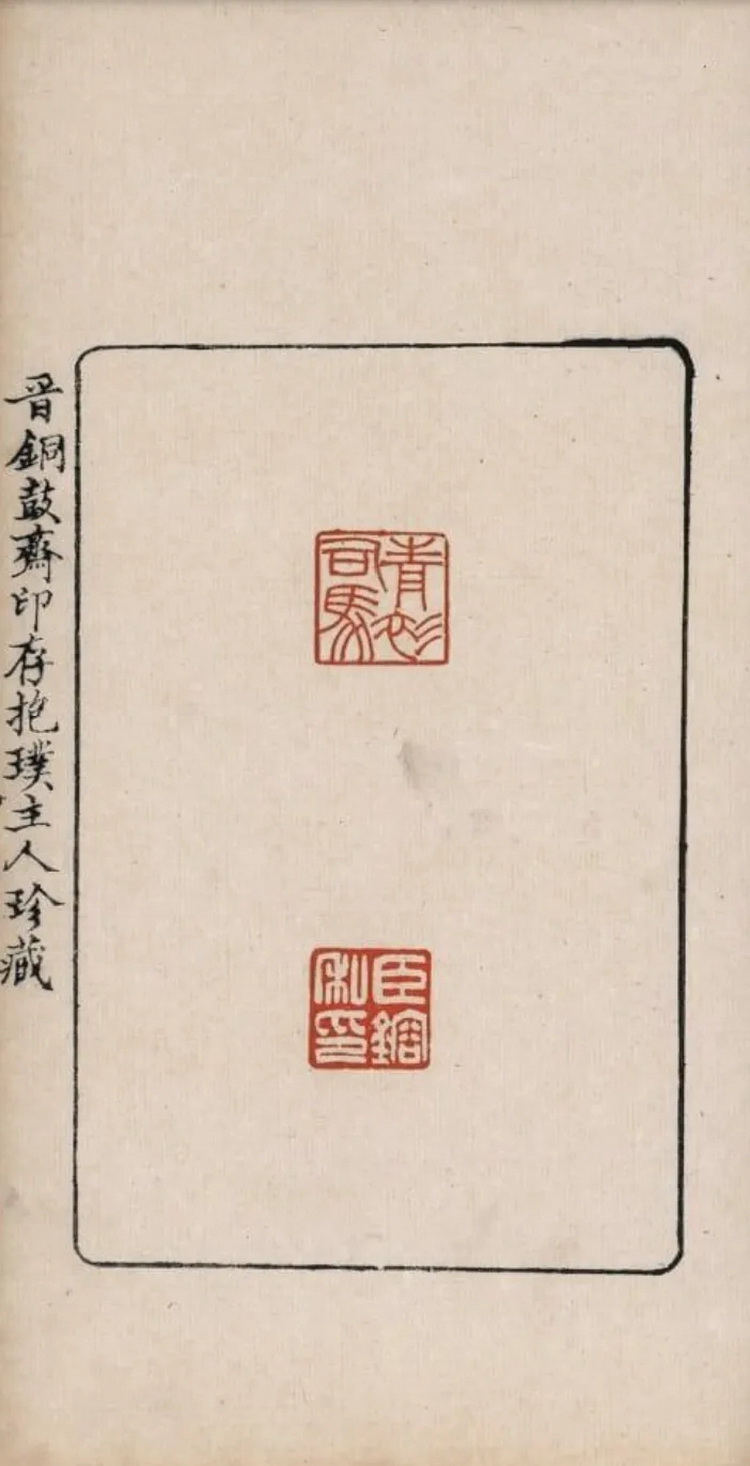 青衫
司馬
臣
私印
晉銅鼓齋印存抱璞主人珍藏